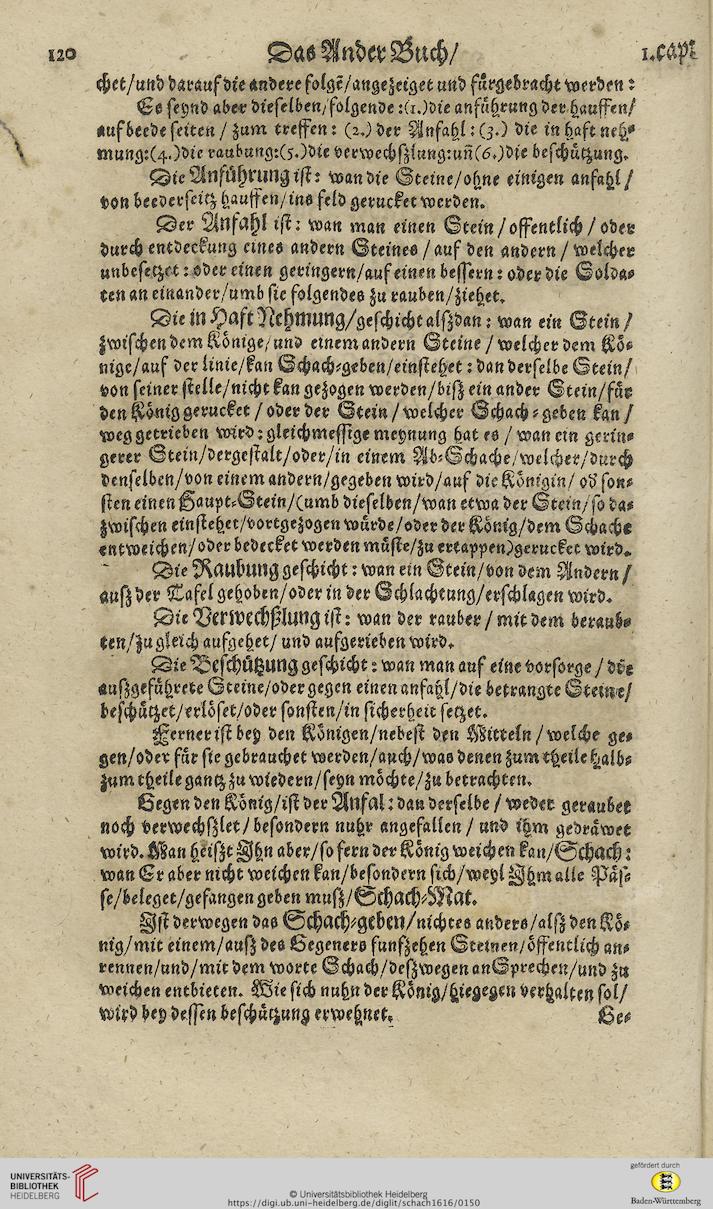 120 Das Ander Buch/ 1.cap:
chet/und darauf die andere folgẽ/angezeiget und fürgebracht werden:
Es seynd aber dieselben/folgende:(1.)die anführung der hauffen/
auf beede seiten / zum treffen: (2.) der Anfahl: (3.) die in haft neh⸗
mung:(4.)die raubung:(5.)die verwechszlung:uñ(6.)die beschützung.
Die Anführung ist: wan die Steine/ohne einigen anfahl/
von beederseitz hauffen/ins feld gerucket werden.
Der Anfahl ist: wan man einen Stein / offentlich / oder
durch entdeckung eines andern Steines / auf den andern / welcher
unbesetzet: oder einen geringern/auf einen bessern: oder die Solda⸗
ten an einander/umb sie folgendes zu rauben/ziehet.
Die in Haft Nehmung/geschicht alszdan: wan ein Stein /
zwischen dem Könige/und einem andern Steine / welcher dem Kö⸗
nige/auf der linie/kan Schach⸗geben/einstehet: dan derselbe Stein/
von seiner stelle/nicht kan gezogen werden/bisz ein ander Stein/für
den König gerucket / oder der Stein / welcher Schach⸗geben kan /
weg getrieben wird: gleichmessige meynung hat es / wan ein gerin⸗
gerer Stein/dergestalt/oder/in einem Ab⸗Schache/welcher/durch
denselben/von einem andern/gegeben wird/auf die Königin/ od̃ son⸗
sten einen Haupt⸗Stein/(umb dieselben/wan etwa der Stein/so da⸗
zwischen einstehet/vortgezogen würde/oder der König/dem Schache
entweichen/oder bedecket werden müste/zu ertappen)gerucket wird.
Die Raubung geschicht: wan ein Stein/von dem Andern/
ausz der Tafel gehoben/oder in der Schlachtung/erschlagen wird.
Die Verwechßlung ist: wan der rauber / mit dem beraub⸗
ten/zu gleich aufgehet/ und aufgerieben wird.
Die Beschützung geschicht: wan man auf eine vorsorge / die
auszgeführete Steine/oder gegen einen anfahl/die betrangte Steine/
beschützet/erlöset/oder sonsten/in sicherheit setzet.
Ferner ist bey den Königen/nebest den Mitteln / welche ge⸗
gen/oder für sie gebrauchet werden/auch/was denen zum theile halb⸗
zum theile gantz zu wiedern/seyn möchte/zu betrachten.
Gegen den König/ist der Anfal: dan derselbe / weder geraubet
noch verwechszlet / besondern nuhr angefallen / und ihm gedräwet
wird. Man heiszt Ihn aber/so fern der König weichen kan/Schach:
wan Er aber nicht weichen kan/besondern sich/weyl Ihm alle Päs⸗
se/beleget/gefangen geben musz/Schach⸗Mat.
Ist derwegen das Schach⸗geben/nichtes anders/alsz den Kö⸗
nig/mit einem/ausz des Gegeners funfzehen Steinen/öffentlich an⸗
rennen/und/mit dem worte Schach/deszwegen anSprechen/und zu
weichen entbieten. Wie sich nuhn der König/hiegegen verhalten sol/
wird bey dessen beschützung erwehnet.
Ge⸗
UNIVERSITÄTS-
BIBLIOTHEK
HEIDELBERG
© Universitätsbibliothek Heidelberg
https://digi.ub.uni-heidelberg.de/diglit/schach1616/0150
gefördert durch
Baden-Württemberg